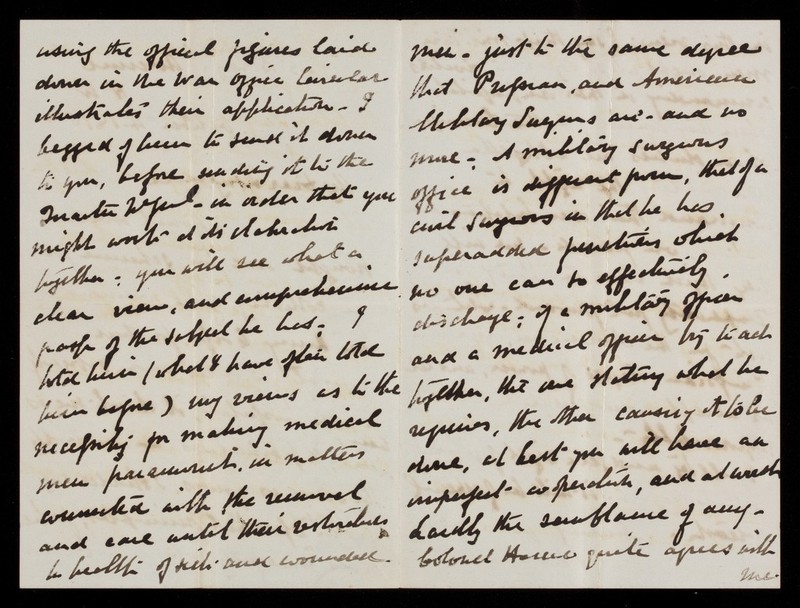 using the official figures laid
down in the War Office Circular
illustrates their application - I
begged of him to send it down
to you, before sending it to the
in order that you
might work at its elaboration
together - you will see what a
clear view, and comprehensive
grasp of the subject he has. I
told him (what I have often told
him before) my views as to the
necessity for making medical
men paramount, in matters
connected with the removal
and care until their restoration
to health of sick and wounded
men - just to the same degree
that Prussian, and American
Military Surgeons are - and no
more - A military surgeons
office is different from, that of a
civil surgeons in that he has
superadded functions which
no one can so effectively
discharge - if a military officer
and a medical officer try to act
together, the one stating what he
requires, the other causing it to be
done, at best you will have an
imperfect cooperation, and at worst
hardly the semblance of any -
Colonel Home quite agrees with
me.